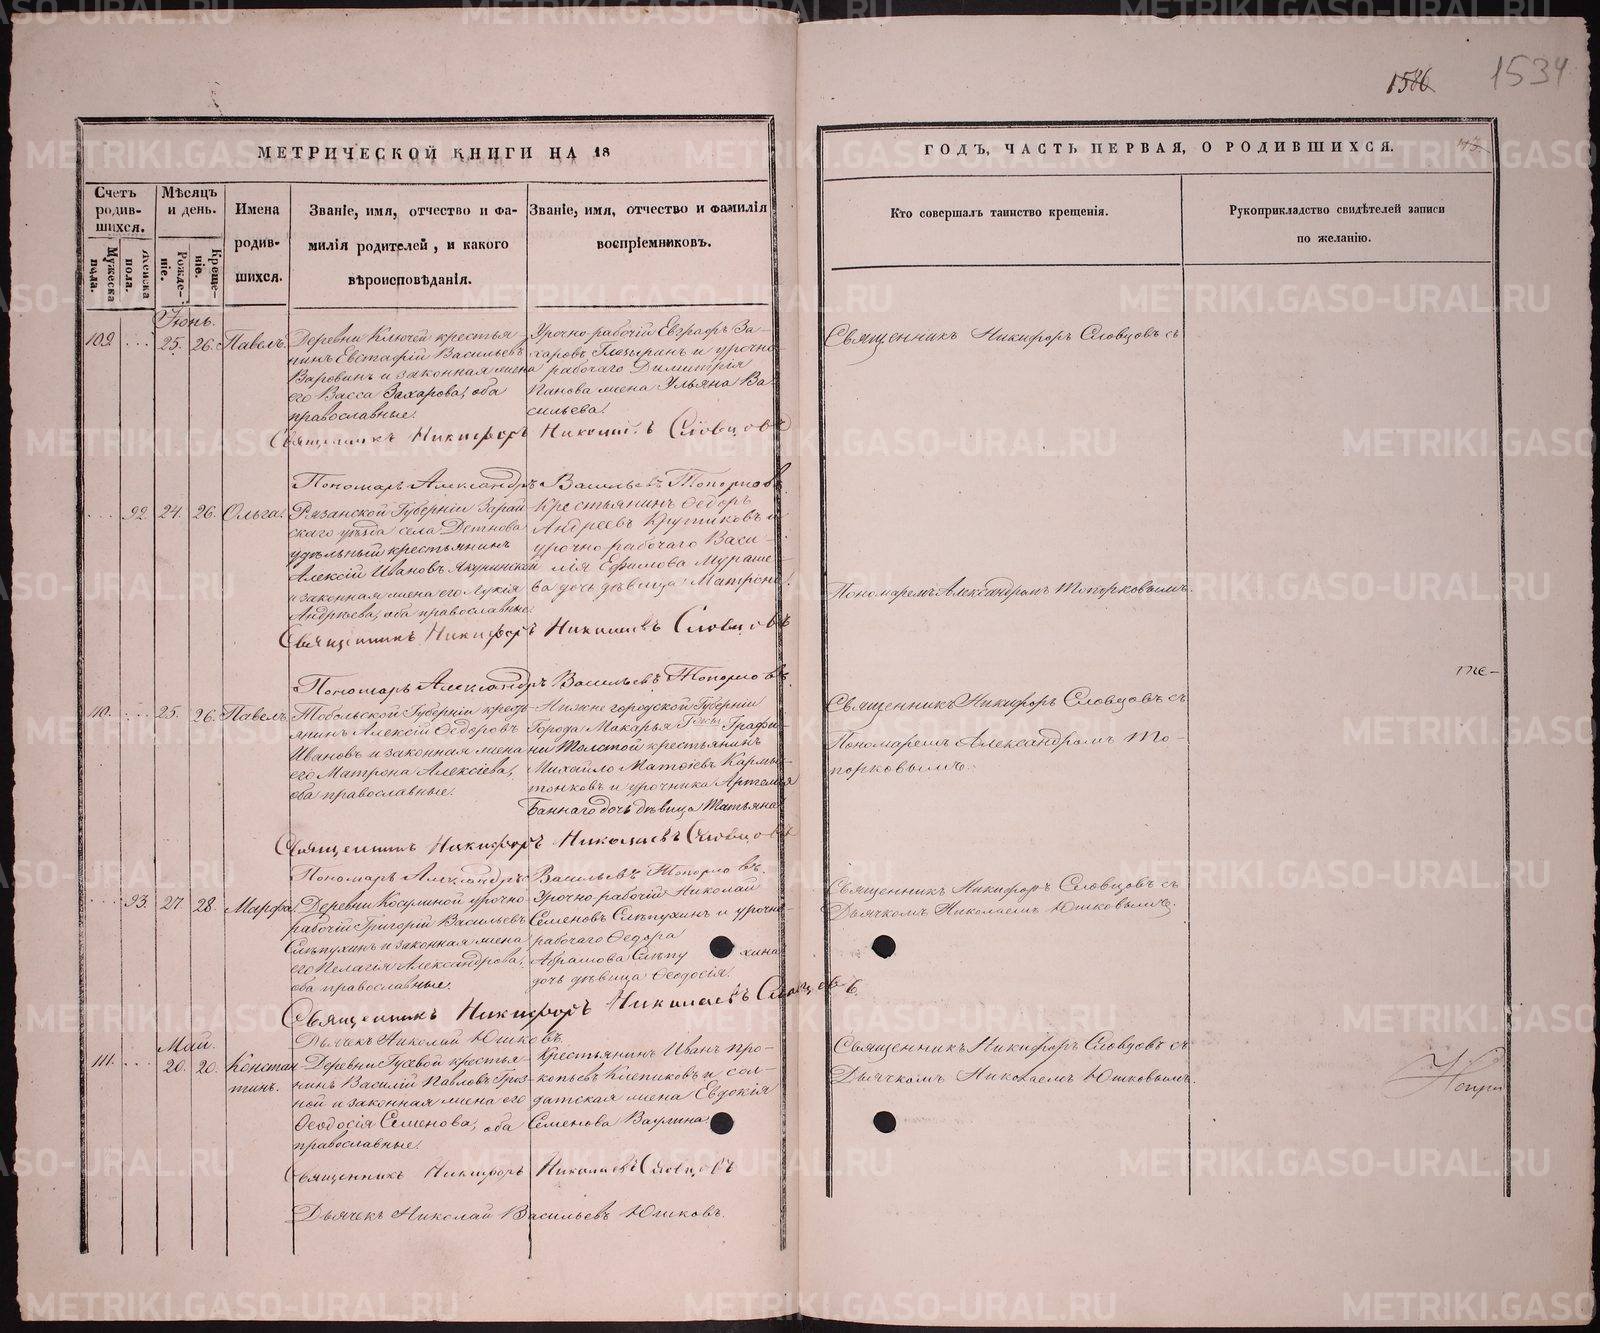 1586
1534
МЕТРИЧЕСКОЙ КНИГИ НА 18
ГОДЪ, ЧАСТЬ ПЕРВАЯ, О РОДИВШИХСЯ.
Счетъ родив-шихся.
Мужеска пола.
Женска пола.
Мѣсяцъ и день.
Рожде-ніе.
Креще-ніе.
Имена
родив-
шихся.
Званіе, имя, отчество и фа-
милія родителей, и какого
вѣроисповѣданія.
Званіе, имя, отчество и фамилія
воспріемниковъ.
Кто совершалъ таинство крещенія.
Рукоприкладство свидѣтелей записи
по желанію.
Іюнь.
109. 25. 26. Павелъ.
Деревни Ключей крестья
нинъ Евстафій Васильевъ
Варовинъ и законная жена
его Васса Захарова, оба
православные.
Урочно-рабочій Евграфъ За-
харовъ и урочно
рабочаго Димитрія
Панова жена Ульяна Ва
сильева.
Священникъ Никифоръ Словцовъ съ
Священникъ Никифоръ Николаевъ Словцовъ
Пономарь Александръ Васильевъ Топорковъ
92. 24. 26. Ольга.
Рязанской Губерніи Зарай
скаго уѣзда села
удѣльный крестьянинъ
Алексій Ивановъ
и законная жена его Лукія
Андреева, оба православные.
Крестьянинъ Ѳедоръ
Андреевъ Крутиковъ и
урочно-рабочаго Васи-
лія Ефимова Мураше-
ва дочь дѣвица Матрона.
Пономаремъ Александромъ Топорковымъ.
Священникъ Никифоръ Николаевъ Словцовъ
Пономарь Александръ Васильевъ Топорковъ.
110. 25. 26. Павелъ.
Тобольской Губерніи крестья
нинъ Алексій Ѳедоровъ
Ивановъ и законная жена
его Матрона Алексіева,
оба православные.
Нижегородской Губерніи
Города Макарья Графи-
ни Толстой крестьянинъ
Михайло
и урочника Артемія
Баннаго дочь дѣвица Татьяна
Священникъ Никифоръ Словцовъ съ
Пономаремъ Александромъ То-
порковымъ.
Священникъ Никифоръ Николаевъ Словцовъ
Пономарь Александръ Васильевъ Топорковъ.
93. 27. 28. Марфа.
Деревни Косулиной урочно-
рабочій Григорій Васильевъ
Слѣпухинъ и законная жена
его Пелагія Александрова,
оба православные.
Урочно-рабочій Николай
Семеновъ Слѣпухинъ и урочно-
рабочаго Ѳедора
Абрамова Слѣпу хина
дочь дѣвица Ѳеодосія.
Священникъ Никифоръ Словцовъ съ
Дьячкомъ Николаемъ Юшковымъ.
Священникъ Никифоръ Николаевъ Словцовъ.
Дьячекъ Николай Юшковъ.
Май.
111. 20. 20. Констан
тинъ.
Деревни Гусевой крестья-
нинъ Василій Павловъ Гроз-
ной и законная жена его
Ѳеодосія Семенова, оба
православные.
Крестьянинъ Иванъ Про-
копьевъ Клепиковъ и сол-
датская жена Евдокія
Семенова Ваулина.
Священникъ Никифоръ Словцовъ съ
Дьячкомъ Николаемъ Юшковымъ.
Священникъ Никифоръ Николаевъ Словцовъ
Дьячекъ Николай Васильевъ Юшковъ.
METRIKI.GASO-URAL.RU